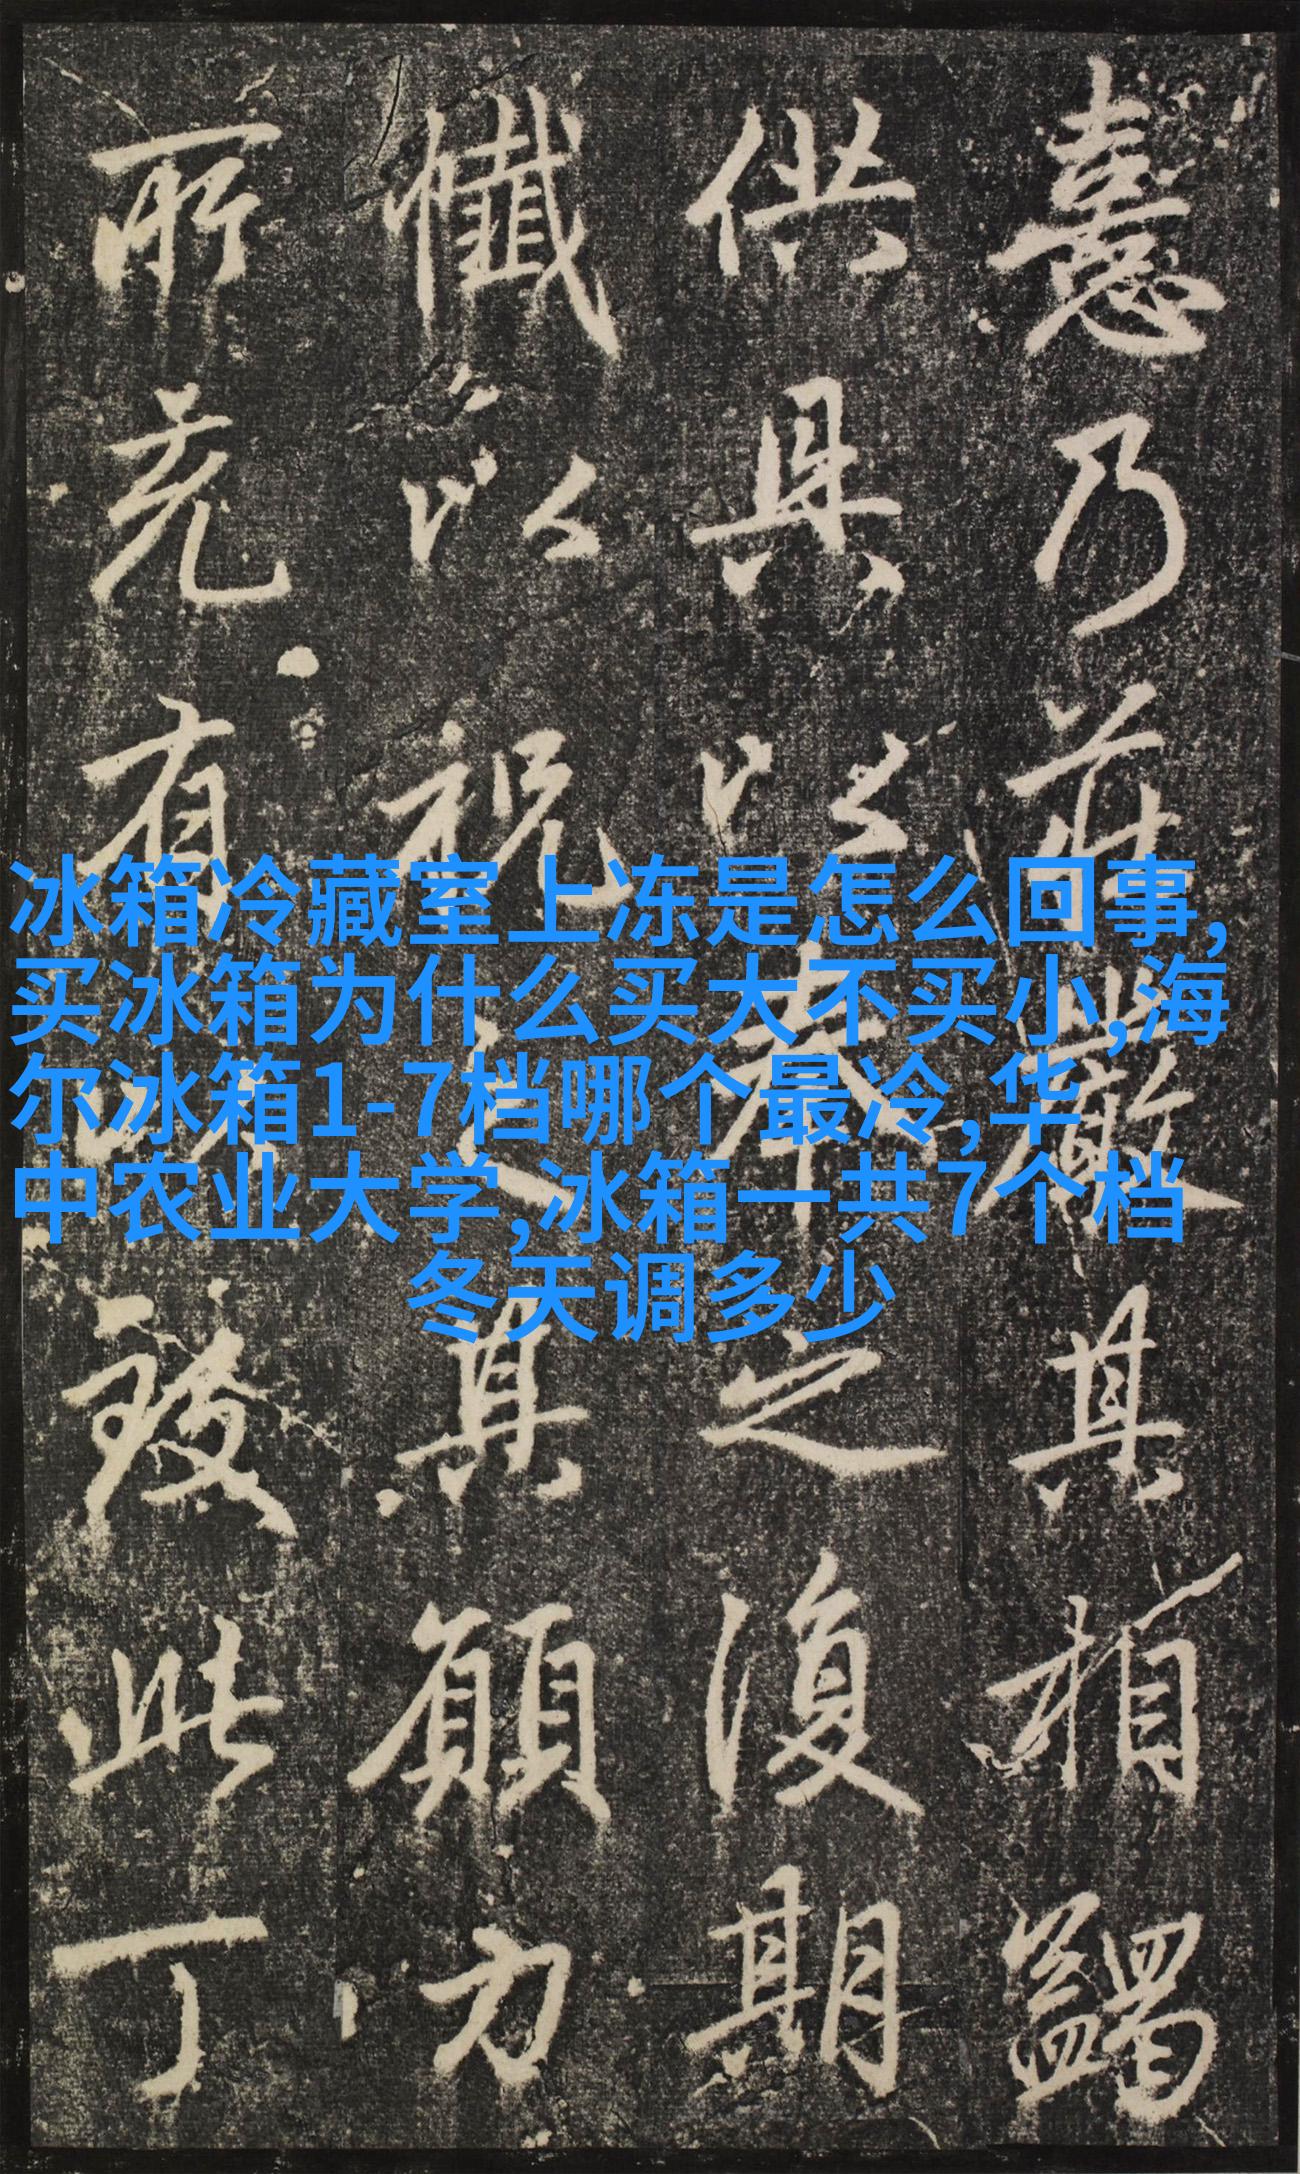 冰箱冷藏室上冻是怎么回事,
买冰箱为什么买大不买小,海
尔冰箱1-7档哪个最冷,华
中农业大学,冰箱一共7个档
冬天调多少
憙乃莊嚴其相蠲
供具以奉之復期
懺以祝之其願方
所有以致此丁